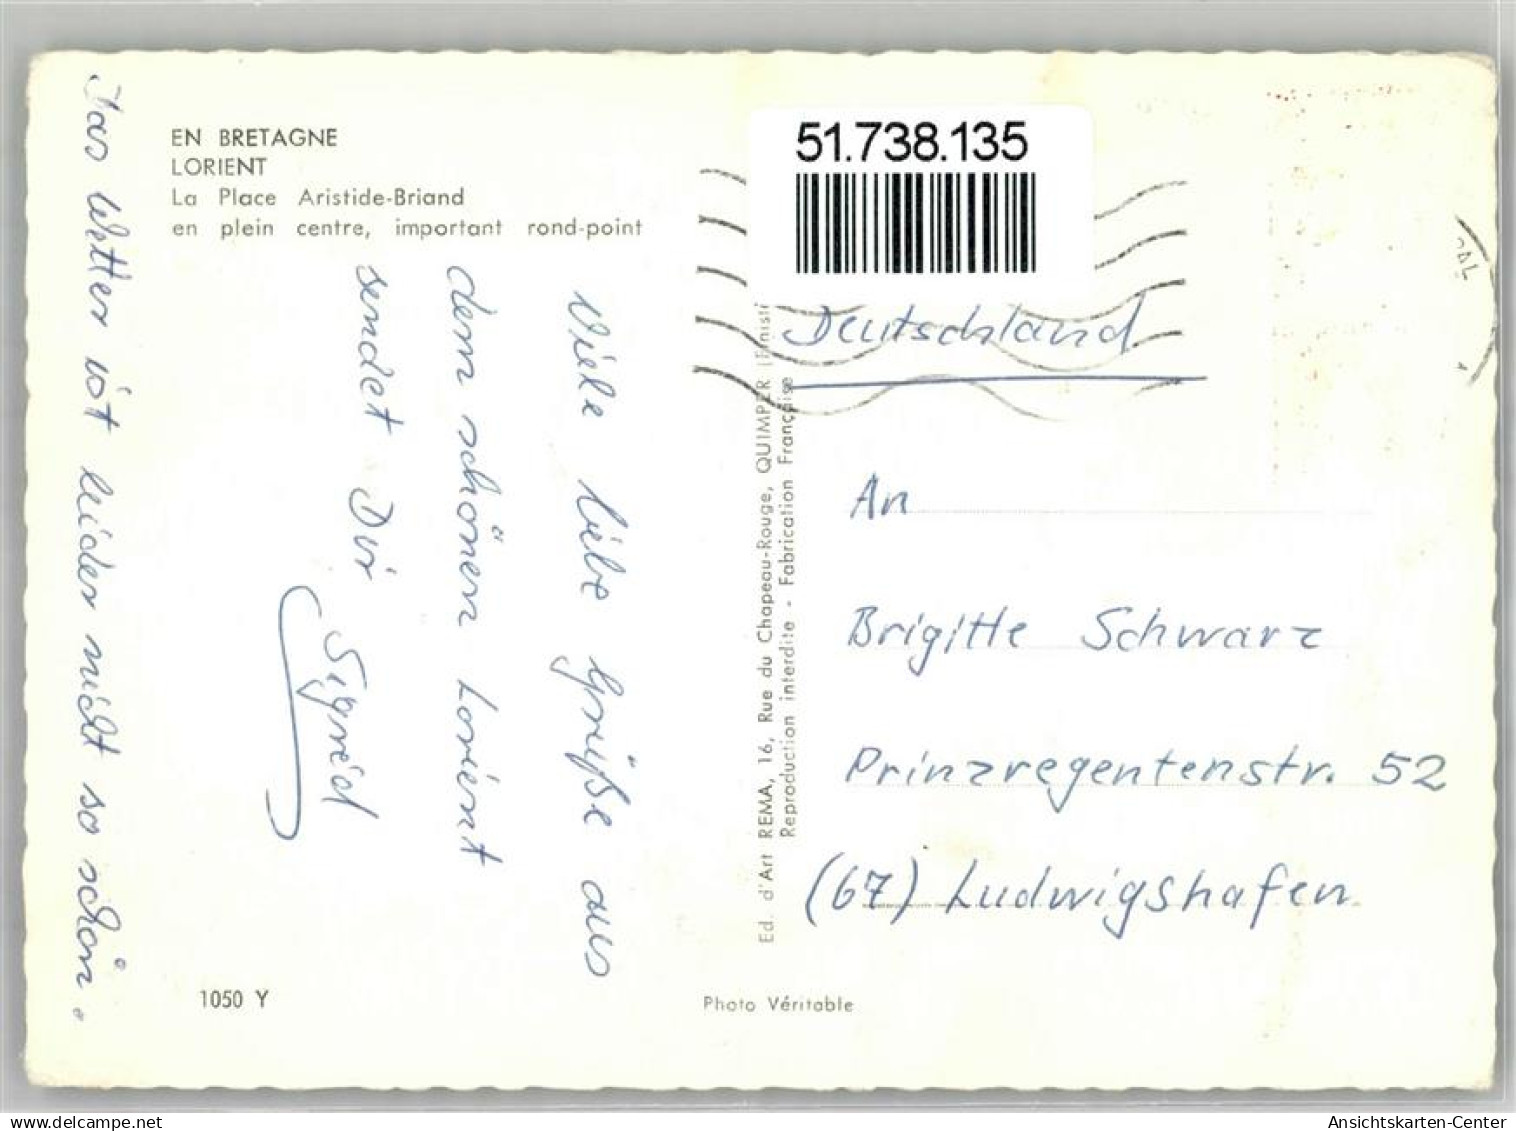 EN BRETAGNE
LORIENT
La Place Aristide-Briand
en plein centre, important rond-point
Viele liebe Grüße aus
dem schönen Lorient
sendet Dir
Sigrid
Das Wetter ist leider nicht so schön.
1050 Y
Ed. d'Art REMA, 16, Rue du Chapeau-Rouge, QUIMPER
Reproduction interdite - Fabrication Française
Photo Véritable
51.738.135
Deutschland
An
Brigitte Schwarz
Prinzregentenstr. 52
(67) Ludwigshafen
Ansichtskarten-Center